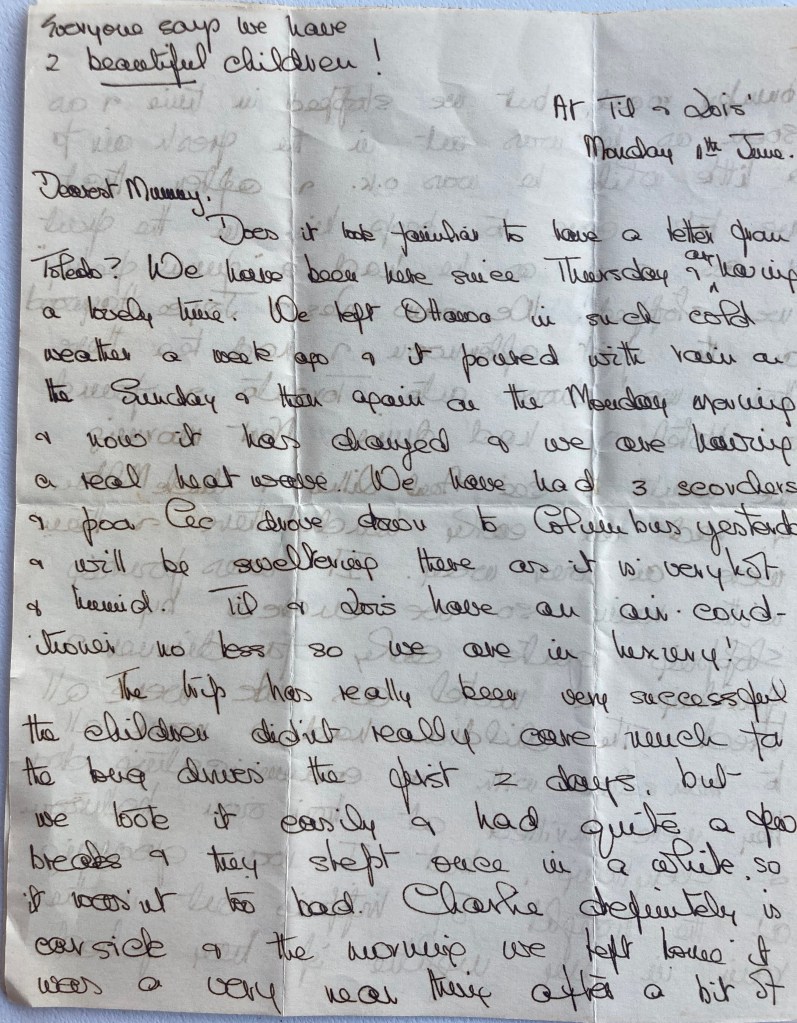 Everyone says we have
2 beautiful children!
At Til & Lois'
Monday June.
Dearest Mummy.
Does it look familiar to have a letter from
Toledo? We have been here since Thursday & are having
a lovely time. We left Ottawa in such cold
weather a week ago & it poured with rain on
the Sunday & then again on the Monday morning
& now it has changed & we are having
a real heat wave. We have had 3 scorchers
& poor Cec drove down to Columbus yesterda
& will be sweltering there as it is very hot
& humid. Til & Lois have an air-cond-
itioner no less so we are in luxury!
The trip has really been very successful
the children didn't really care much for
the long drives the first 2 days, but
we took it easily & had quite a few
breaks & they slept once in a while, so
it wasn't too bad. Charlie definitely is
carsick & the morning we left home it
was a very near thing after a bit of